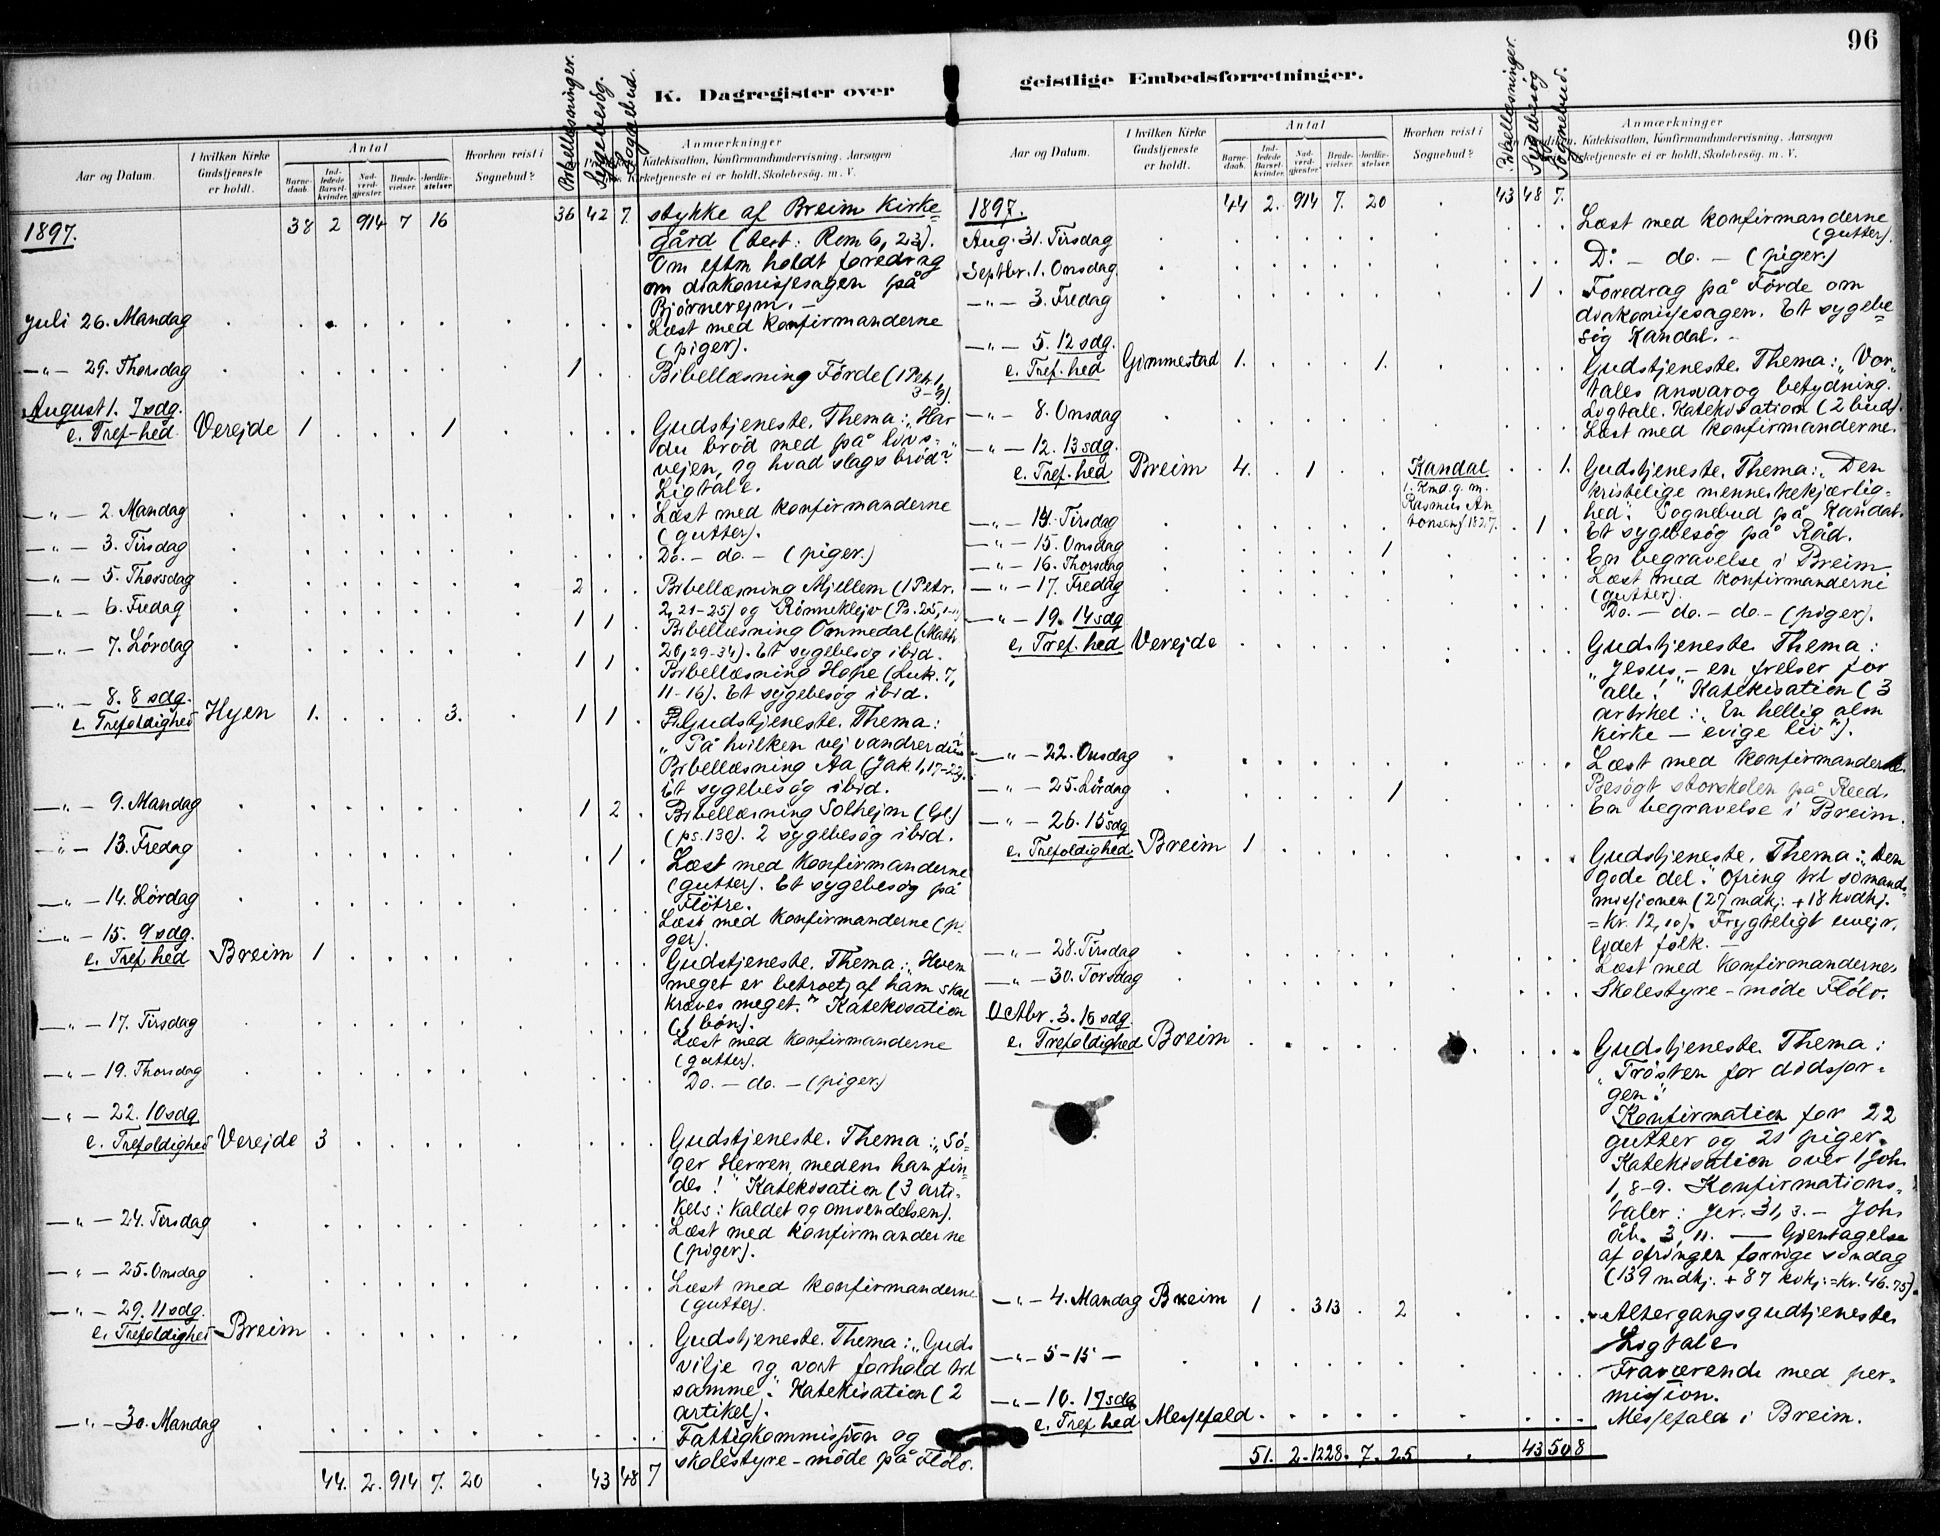 96
K. Dagregister over
geistlige Embedsforretninger.
Bibellæsninger.
Sygebesøg.
Sognebud.
Aar og Datum.
I hvilken Kirke Gudstjeneste er holdt.
Antal
Barnedaab.
Indledede Barselkvinder.
Nadverdgjæster.
Brudevielser.
Jordfæstelser.
Hvorhen reist i Sognebud?
Anmærkninger
Katekisation, Konfirmandundervisning. Aarsagen
Kirketjeneste ei er holdt. Skolebesøg. m. V.
1897. 38 2 914 7 16 36 42 7. stykke af Breim Kirke=
gård (test: Rom 6, 23).
Om eftm holdt foredrag
om diakonissesagen på
Bjørnerejm. –
Juli 26. Mandag Læst med konfirmanderne
(piger).
–"– 29. Thorsdag 1 Bibellæsning Førde (1 Petr 1,
3–9).
August 1. 7 sdg.
e. Tref-hed Verejde 1 1 Gudstjeneste. Thema: "Har
du brød med på livs=
vejen, og hvad slags brød?"
Ligtale.
–"– 2. Mandag Læst med konfirmanderne
(gutter).
–"– 3. Tirsdag Do. – do. – (piger.)
–"– 5. Thorsdag 2 Bibellæsning Mjellem (1 Petr.
2, 21–25) og Rønneklejv (Ps. 25,
–"– 6. Fredag 1 1 Bibellæsning Ommedal (Math
20, 29–34). Et sygebesøg ibid.
–"– 7. Lørdag 1 1 Bibellæsning Hope (Luk. 7,
11–16). Et sygebesøg ibid.
–"– 8. 8 sdg.
e. Trefoldighed Hyen 1. 3. 1 1 Gudstjeneste. Thema:
"På hvilken vej vandrer du?"
Bibellæsning Aa (Jak. 1, 17–22).
Et sygebesøg ibid.
–"– 9. Mandag 1 2 Bibellæsning Solhejm (Gl.)
(ps. 130). 2 sygebesøg ibid.
–"– 13. Fredag 1 Læst med konfirmanderne
(gutter). Et sygebesøg på
Fløtre.
–"– 14. Lørdag Læst med konfirmanderne (pi
ger).
–"– 15. 9 sdg.
e. Tref hed Breim 1 Gudstjeneste. Thema: "Hvem
meget er betroet, af ham skal
kræves meget." Katekisation
(1 bøn).
–"– 17. Tirsdag Læst med konfirmanderne
(gutter).
–"– 19. Thorsdag Do. – do. – (piger)
–"– 22. 10 sdg
e. Trefoldighed Verejde 3 Gudstjeneste. Thema: "Sø=
ger Herren, medens han fin=
des!" Katekisation (3 arti=
kels: kaldet og omvendelsen).
–"– 24. Tirsdag Læst med konfirmanderne
(piger).
–"– 25. Onsdag Læst med konfirmanderne
(gutter).
–"– 29. 11 sdg.
e. Trefoldighed Breim Gudstjeneste. Thema: "Guds
vilje og vort forhold til
samme." Katekisation (2
artikel).
–"– 30. Mandag Fattigkommission og
skolestyre–møde på Flølo.
44. 2. 914 7. 20 43 48 7
Bibellæsninger.
Sygebesøg
Sognebud.
Aar og Datum.
I hvilken Kirke Gudstjeneste er holdt.
Antal
Barnedaab.
Indledede Barselkvinder.
Nadverdgjæster.
Brudevielser.
Jordfæstelser.
Hvorhen reist i Sognebud?
Anmærkninger
Katekisation, Konfirmandundervisning. Aarsagen
Kirketjeneste ei er holdt. Skolebesøg. m. V.
1897. 44 2. 914 7. 20 43 48 7.
Aug. 31. Tirsdag Læst med konfirmanderne
(gutter).
Septbr. 1. Onsdag D: – do. – (piger.)
–"– 3. Fredag 1 Foredrag på Førde om
diakonissesagen. Et sygebe=
søg Kandal. –
–"– 5. 12 sdg.
e. Tref. hed Gimmestad 1. 1. Gudstjeneste. Thema: "Vor
tales ansvar og betydning."
Ligtale. Katekisation (2 bud).
–"– 8. Onsdag Læst med konfirmanderne.
–"– 12. 13 sdg.
e. Tref. hed Breim 4. 1 Kandal
1. Kmd. g. m.
Rasmus An
tonsen f 1827. 1. Gudstjeneste. Thema: "Den
kristelige menneskekjærlig=
hed". Sognebud på Kandal.
–"– 14. Tirsdag 1 Et sygebesøg på Råd.
–"– 15. Onsdag 1 En begravelse i Breim.
–"– 16. Thorsdag Læst med konfirmanderne
(gutter).
–"– 17. Fredag Do. – do. – do. – (piger).
–"– 19. 14 sdg
e. Tref. hed Verejde Gudstjeneste Thema:
"Jesus – en frelser for
alle." Katekisation (3
artikel: "En hellig alm
kirke – evige liv").
–"– 22. Onsdag Læst med konfirmanderne.
–"– 25. Lørdag 1 Besøgt storskolen på Reed.
En begravelse i Breim.
–"– 26. 15 sdg
e. Trefoldighed. Breim 1 Gudstjeneste. Thema: "Den
gode del." Ofring til sømands
missionen (27 mdkj. + 18 kvdkj.
= Kr. 12,10). Frygteligt uvejr,
lidet folk. –
–"– 28. Tirsdag Læst med konfirmandernes
–"– 30. Torsdag Skolestyre–møde Flølo.
Octbr. 3. 16 sdg.
e. Trefoldighed Breim Gudstjeneste Thema:
"Trøsten for dødssor=
gen."
Konfirmation for 22
gutter og 21 piger.
Katekisation over 1 Joh.
1, 8–9. Konfirmations=
taler: Jer. 31, 3. – Joh.
åb. 3, 11. — Gjentagelse
af ofringen forrige søndag
(139 mdkj. + 87 kvkj: = Kr. 46.75).
–"– 4. Mandag Breim 1 313 2 Altergangsgudtjeneste
Ligtale
–"– 5–15 – Fraværende med per=
mission.
–"– 10. 17 sdg
e. Tref hed Messefald Messefald i Breim.
51. 2. 1228. 7. 25 43 50 8